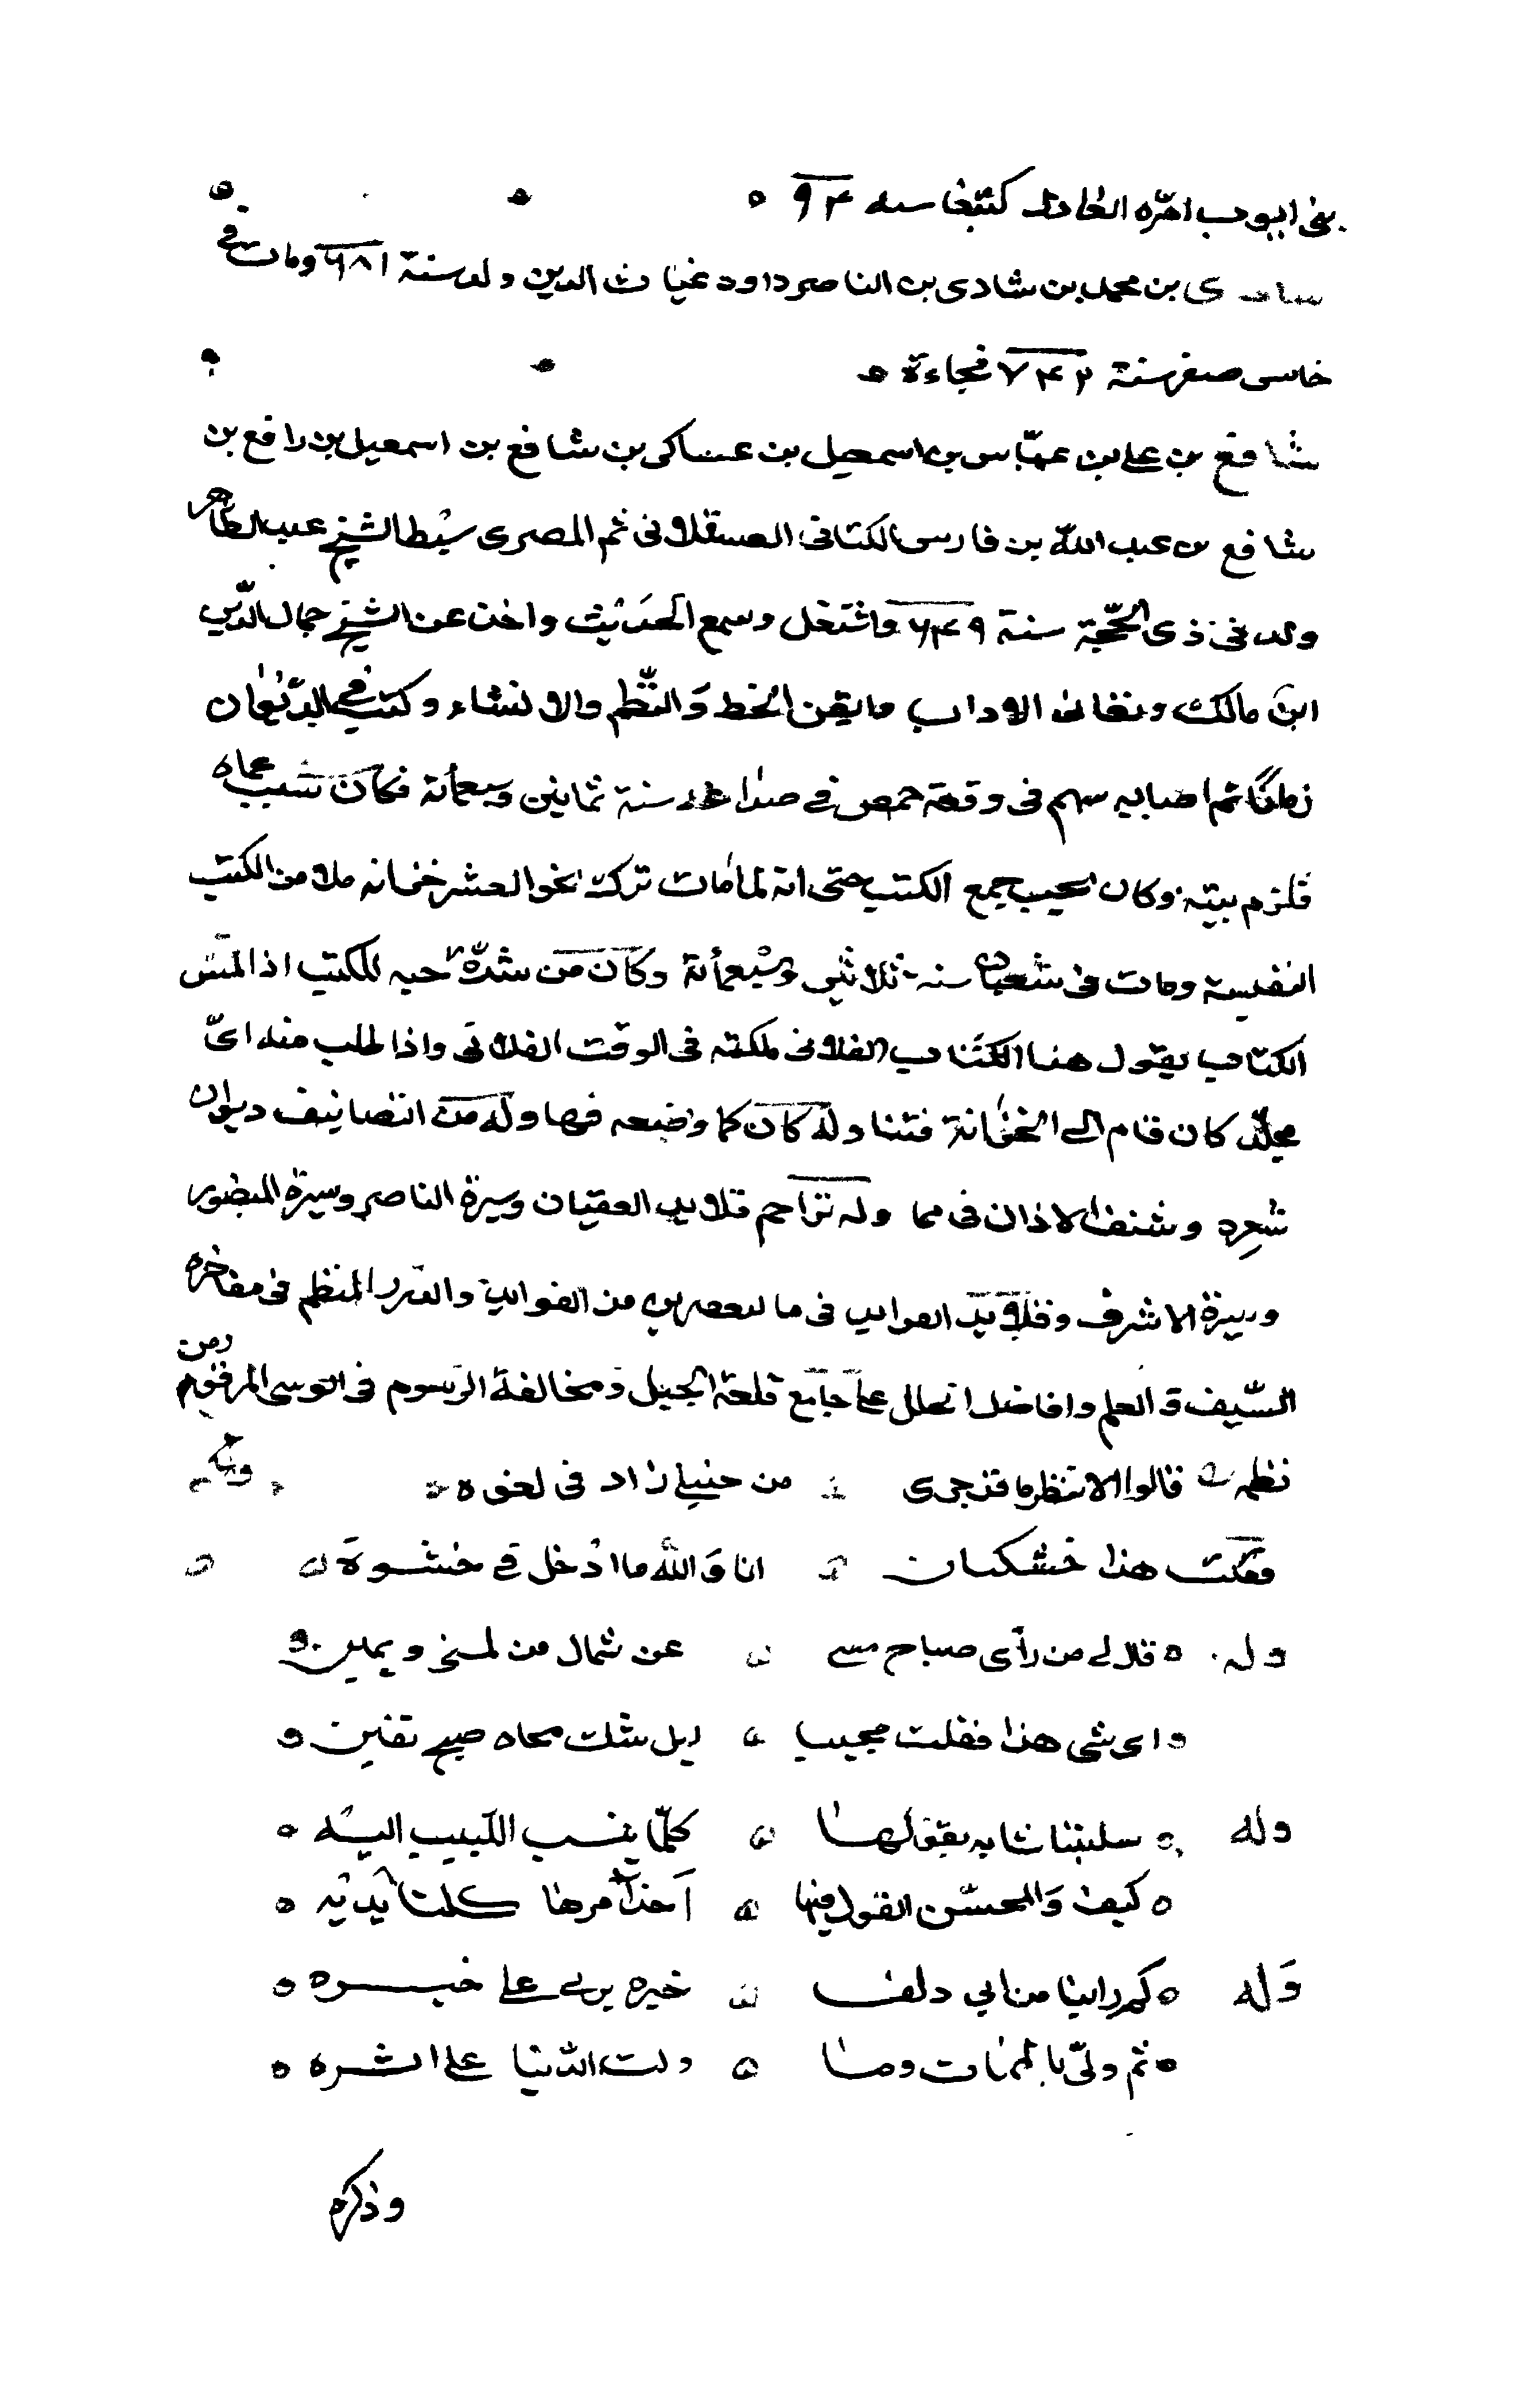 بنى ايوب امّره العادل كتبغا سنه ٩٤
شادى بن محمد بن شادى بن الناصر داود غياث الدين ولد سنة ٦٨١ ومات فى
خامس صفر سنة ٧٤٢ فجاءة
شافع بن على بن عبّاس بن اسمعيل بن عساكر بن شافع بن اسمعيل بن رافع بن
شافع بن عبد الله بن فارس الكتانى العسقلانى ثم المصرى سبط الشيخ عبد الظاهر
ولد فى ذى الحجّة سنة ٦٤٩ واشتغل وسمع الحديث واخذ عن الشيخ جمال الدّين
ابن مالك وتعانى الاداب فاتقن الخط والنّظم والانشاء وكتب فى الديوان
زمانًا ثم اصابه سهم فى وقعة حمص فى سنة ثمانين وسبعمأنة فكان سبب عماه
فلزم بيته وكان يحب جمع الكتب حتى انه لما مات ترك نحو العشر خزانه ملا من الكتب
النفيسة ومات فى شعبان سنة ثلاثين وسبعمأنة وكان من شدّة حبه للكتب اذا لمس
الكتاب يقول هذا الكتاب الفلانى ملكته فى الوقت الفلانى واذا طلب منه اىّ
مجلّد كان قام الى الخزانة فتناوله كان كما وضعه فيها وله من التصانيف ديوان
شعره وشنف الاذان فى مما وله تراجم قلايد العقيان وسيرة الناصر وسيرة المنصور
وسيرة الاشرف وقلايد الفرايد فى ما للعصريين من الفوايد والدرر المنظم فى مفاخره
السّيف و العلم وافاضل الحلل على جامع قلعة الجبل ومخالفة الرسوم فى الوشى المرقوم ومن
نظمه قالوا الا تنظر ما قد جرى من حنبلى زاد فى لغوه
هذا خشكنان انا والله ما ادخل فى حشوة
وله قال لى من رأى صباح مشيبى عن شمال من لمتى ويمين
واى شى هذا فقلت مجيبا ليل شك محاه صبح يقين
وله سلبتنا شابه بقولها كلّما ينسب اللبيب اليه
كيف والمحسّن القول فيها آخذ امرها بكلتا يديه
وله كم راينا من ابى دلف خيره يربى على خبره
ثم ولّى بالممات وما ولت الدنيا على اثره
وذكره